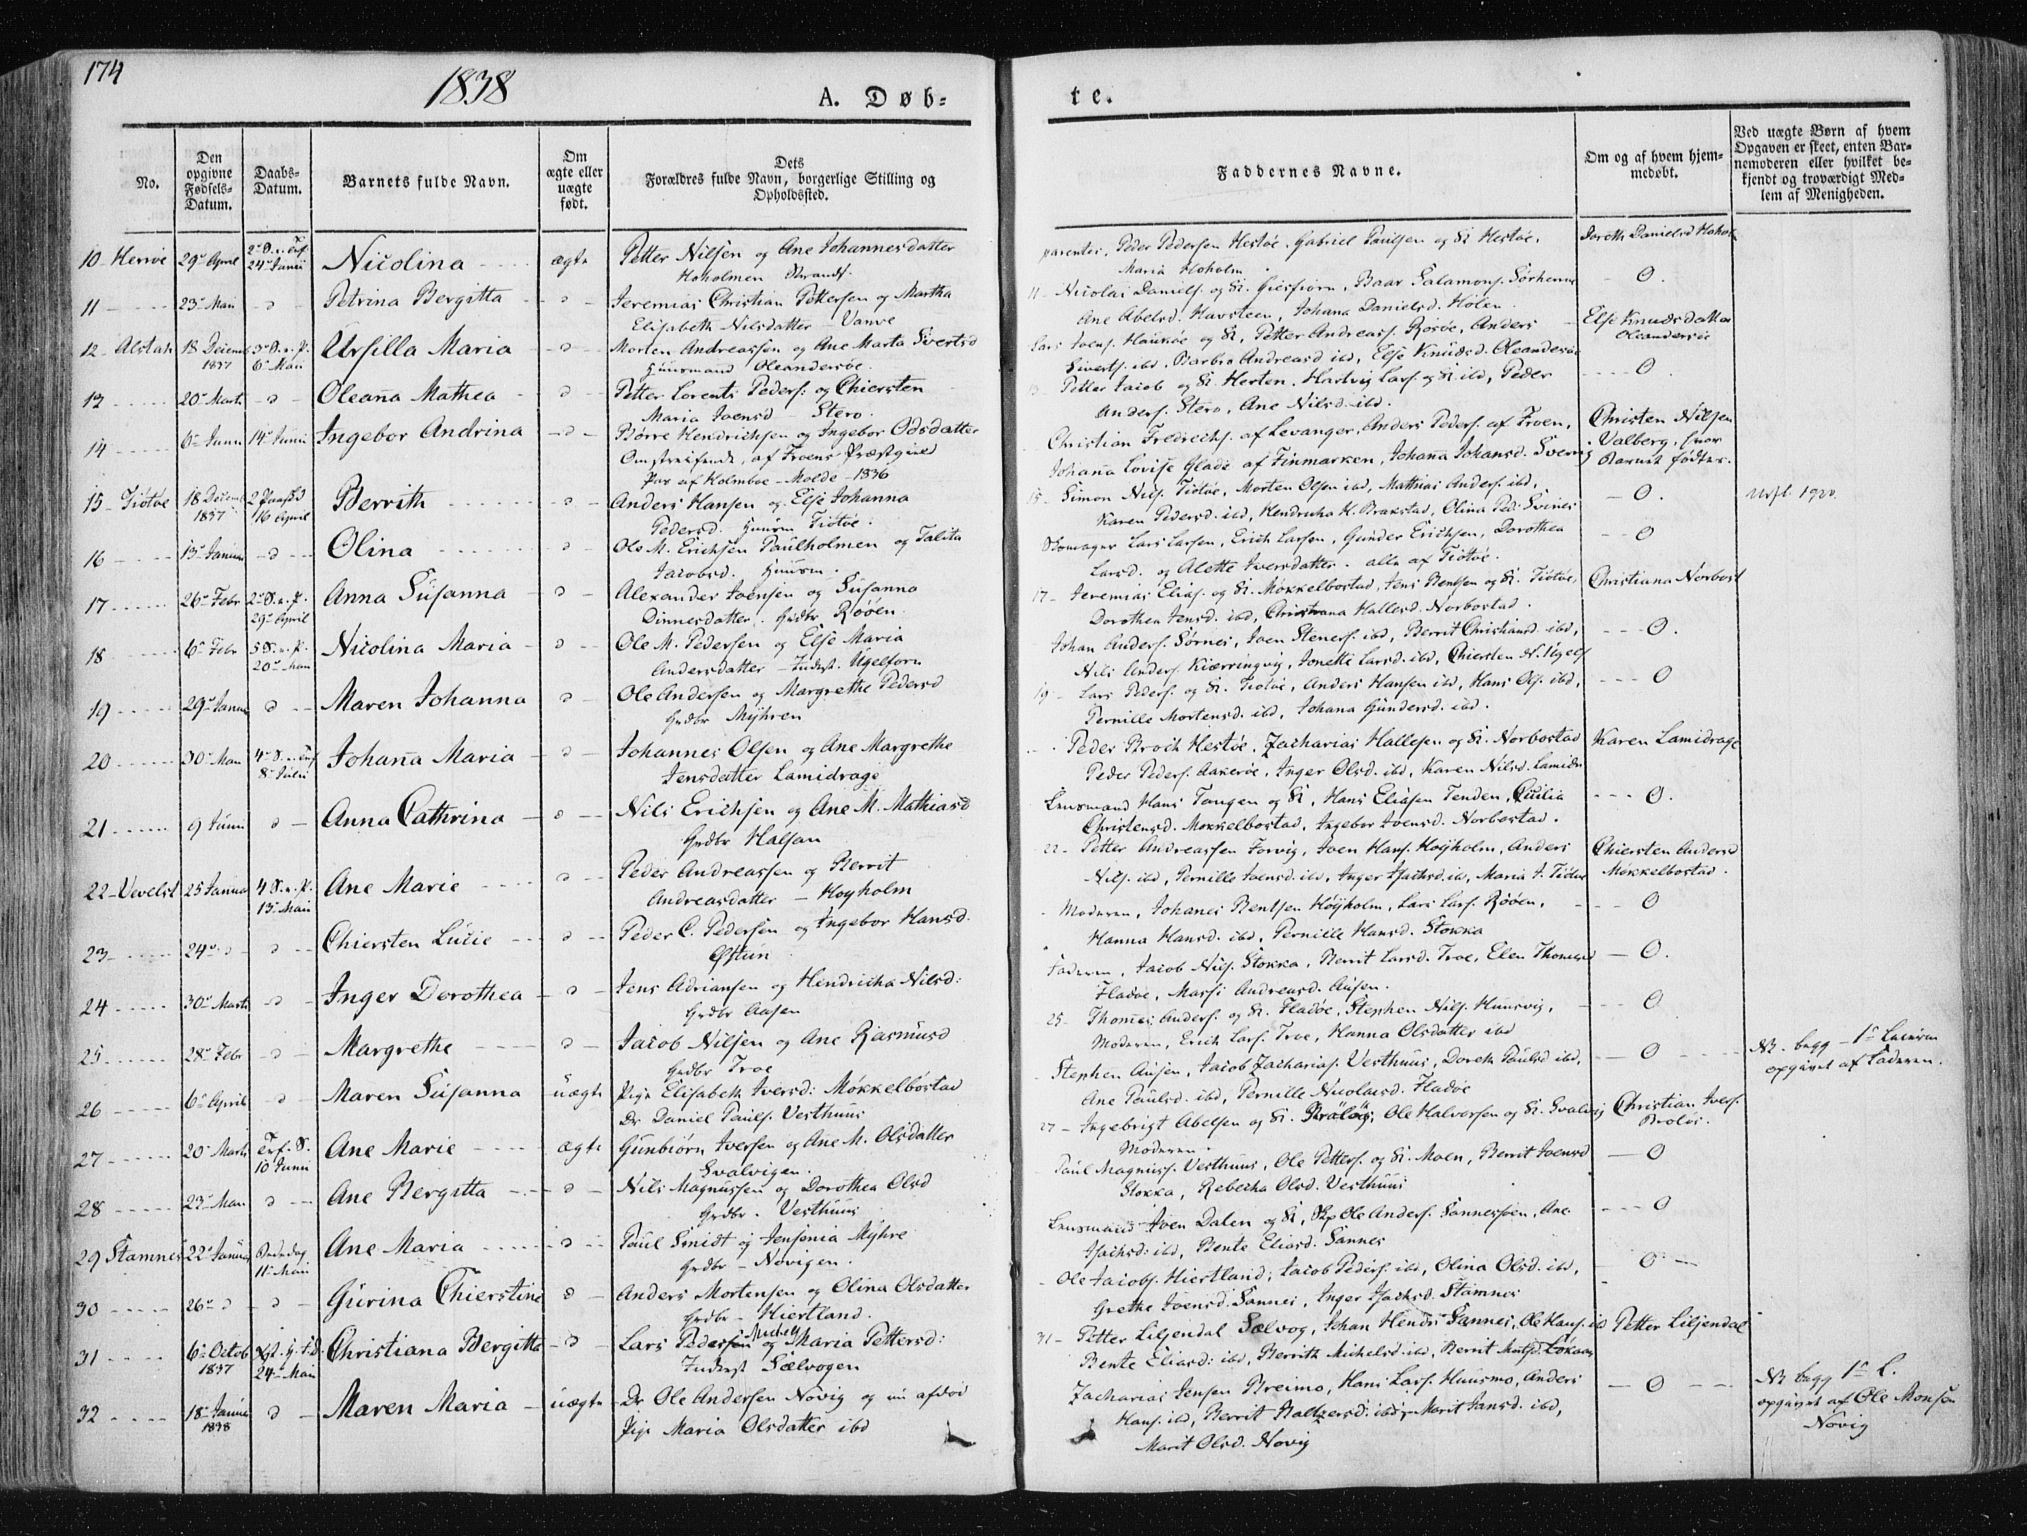 174
1838
A. Døb-
te.
No.
Den opgivne Fødsels-Datum.
Daabs-Datum.
Barnets fulde Navn.
Om ægte eller uægte født.
Dets Forældres fulde Navn, borgerlige Stilling og Opholdssted.
Faddernes Navne.
Om og af hvem hjem-medøbt.
Ved uægte Børn af hvem Opgaven er skeet, enten Bar-nemoderen eller hvilket be-kjendt og troværdigt Med-lem af Menigheden.
10 Herrøe 29 April 24 Junii Nicolina ægte Petter Nilsen og Ane Johannesdatter
Hoholmen
Peder Pedersen Hestøe, Gabriel Paulsen og K. Hestøe,
Maria Hoholm
Doreth Danielsd
11 23 Mai Petrina Bergitta Jeremias Christian Pettersen og Martha
Elisabeth Nilsdatter
11 Nicolai Daniels. og K.
Ane Abelsd. Havsteen, Johana Danielsd. Holen
O
12 Alstah 18 Decemb 1837 6 Mai Ursilla Maria Morten Andreassen og Ane Marta Sivertsd
Huusmand Oleandersøe
Petter Andreass. Rosøe, Anders
Siverts. ibd, Barbro Andreasd ibd, Else Knudsd. Oleandersøe
Else Knudsdatter Oleandersøe
13 20 Marts Oleana Mathea Petter Lorents Peders. og Chiersten
Maria Joensd Stero
Petter Jacob og K. Hesten, Hartvig Lars. og K. ibd, Peder
Anders. Stero, Ane Nilsd. ibd.
O
14 6 Junii 14 Junii Ingebor Andrina Børre Hendrichsen og Ingebor Odsdatter
Omstreifende, af Froens Præstegield
Pas af Holmboe Molde 1836
Christian Fredrechs. af Levanger, Anders Peders. af Froen,
Johana Lovise Glade af Finmarken, Johana Johansd.
Christen Nilsen Valberg, hvor Barnet fødtes.
15 Tiøtøe 18 Decemb 1837 16 April Berrith Anders Hansen og Else Johanna
Pedersd. Huusm Tiøtøe
15 Simon Nils. Tiøtøe, Morten Olsen ibd, Mathias Anders. ibd,
Karen Pedersd. ibd,
O
16 13 Januar Olina Ole M. Erichsen Paulholmen og Talita
Jacobsd. Huusm.
Skomager Lars Larsen, Erich Larsen, Gunder Erichsen, Dorothea
Larsd. og Alette Iversdatter. alle af Tiøtøe.
O
17 26 Febr 29 April Anna Susanna Alexander Joensen og Susanna
Dinnesdatter Grdbr Røøen
17 Jeremias Elias. og K. Møkkelbostad, Jens Bentsen og K. Tiøtøe,
Dorothea Jensd. ibd, Christiana Hallesd. Norbostad.
Christiana Norbost
18 6 Febr 20 Mai Nicolina Maria Ole M. Pedersen og Else Maria
Andersdatter
Johan Anders. Sørnes, Joen Steners. ibd, Berrit Christiansd. ibd,
Nils Anders. Kiærringvig, Jonette Larsd. ibd, Chiersten N.
O
19 29 Januar Maren Johanna Ole Andersen og Margrethe Pedersd
Grdbr Myhren
19 Lars Peders. og K. Tiøtøe, Anders Hansen ibd, Hans Ols. ibd,
Pernille Mortensd. ibd, Johana Gundersd. ibd.
O
20 30 Mai 8 Julii Johana Maria Johannes Olsen og Ane Margrethe
Jensdatter Lamidrage
Peder Broch Hestøe, Zacharias Hallesen og K. Norbostad
Peder Peders. Aakerøe, Inger Olsd. ibd, Karen Nilsd.
Karen Lamidrage
21 9 Junii Anna Cathrina Nils Erichsen og Ane M. Mathiasd
Grdbr Halsan
Lensmand Hans Tangen og K, Hans Eliasen Tenden,
Christensd. Møkkelbostad, Ingebor Joensd. Norbostad.
O
22 Vevelst 25 Januar 13 Mai Ane Marie Peder Andreassen og Berrit
Andreasdatter Høyholm
22 Petter Andreassen Forvig, Joen Hans. Høyholm, Anders
Nils. ibd, Pernille Joensd. ibd,
Chiersten Andersd Møkkelbostad.
23 24 Chiersten Lucie Peder C. Pedersen og Ingebor Hansd.
Moderen, Johanes Bentsen Høyholm, Lars Lars. Røøen,
Hanna Hansd. ibd, Pernille Hansd. Stokka
O
24 30 Marts Inger Dorothea Jens Adriansen og Hendricha Nilsd:
Grdbr Aasen
Faderen, Jacob Nils. Stokka, Berrit Larsd. Troe, Elen Thomasd
Fladøe, Massi Andreasd. Aasen.
O
25 28 Febr Margrethe Jacob Nilsen og Ane Rasmusd
Grdbr Troe
25 Thomas Anders. og K. Fladøe, Stephen Nils. Huusvig,
Moderen, Erich Lars. Troe, Hanna Olsdatter ibd
O
26 6 April Maren Susanna uægte Pige Elisabeth Iversd: Møkkelbostad
Dr Daniel Pauls. Vesthuus
Stephen Aasen, Jacob Zacharias. Vesthuus, Doreth Paulsd ibd,
Ane Paulsd. ibd, Pernille Nicolaisd. Fladøe
O
NB. begg 1 Leierm opgivet af Faderen.
27 20 Marts 10 Junii Ane Marie ægte Gunbiørn Iversen og Ane M. Olsdatter
Svalvigen
27 Ingebrigt Abelsen og K. Ole Halvorsen og K. Svalvig
Moderen.
Christian Ivers.
28 23 Mai Ane Bergitta Nils Magnussen og Dorothea Olsd
Grdbr. Vesthuus
Paul Magnuss. Vesthuus, Ole Petters. og K. Moen, Berrit Joensd
Stokka, Rebecha Olsd. Vesthuus
O
29 Stamnes 22 Januar Bededag 11 Mai Ane Maria Paul Smidt og Jensenia Myhre
Grdbr Novigen.
Lensmand Joen Dalen og K, Ole Anders. Sannessøen, Ane
ibd, Bente Eliasd. Sannes
O
30 26 Gurina Chierstine Anders Mortensen og Olina Olsdatter
Grdbr Hiertland.
Ole Jacobs. Hiertland, Jacob Peders. ibd, Olina Olsd. ibd,
Grethe Joensd. Sannes, Inger Isachsd. Stamnes
O
31 6 Octob 1837 24 Mai Christiana Bergitta Lars Pedersen og Maria Pettersd:
Inderst Sælvogen
31 Petter Liljendal Sælvog, Johan Hendr. Sannes, Ole Hans. ibd
Bente Eliasd: ibd, Berrith Michelsd. ibd, Berrit
Petter Liljendal
32 18 Januar 1838 Maren Maria uægte Dr Ole Andersen Novig og nu afdød
Pige Maria Olsdatter ibd
Zacharias Jensen Breimo, Hans Lars. Huusmo, Anders
Hans. ibd, Berrit Baltzersd. ibd, Marit Jansd. ibd,
Marit Olsd. Novig
O
NB begg 1 L. opgivet af Ole Monsen Novig